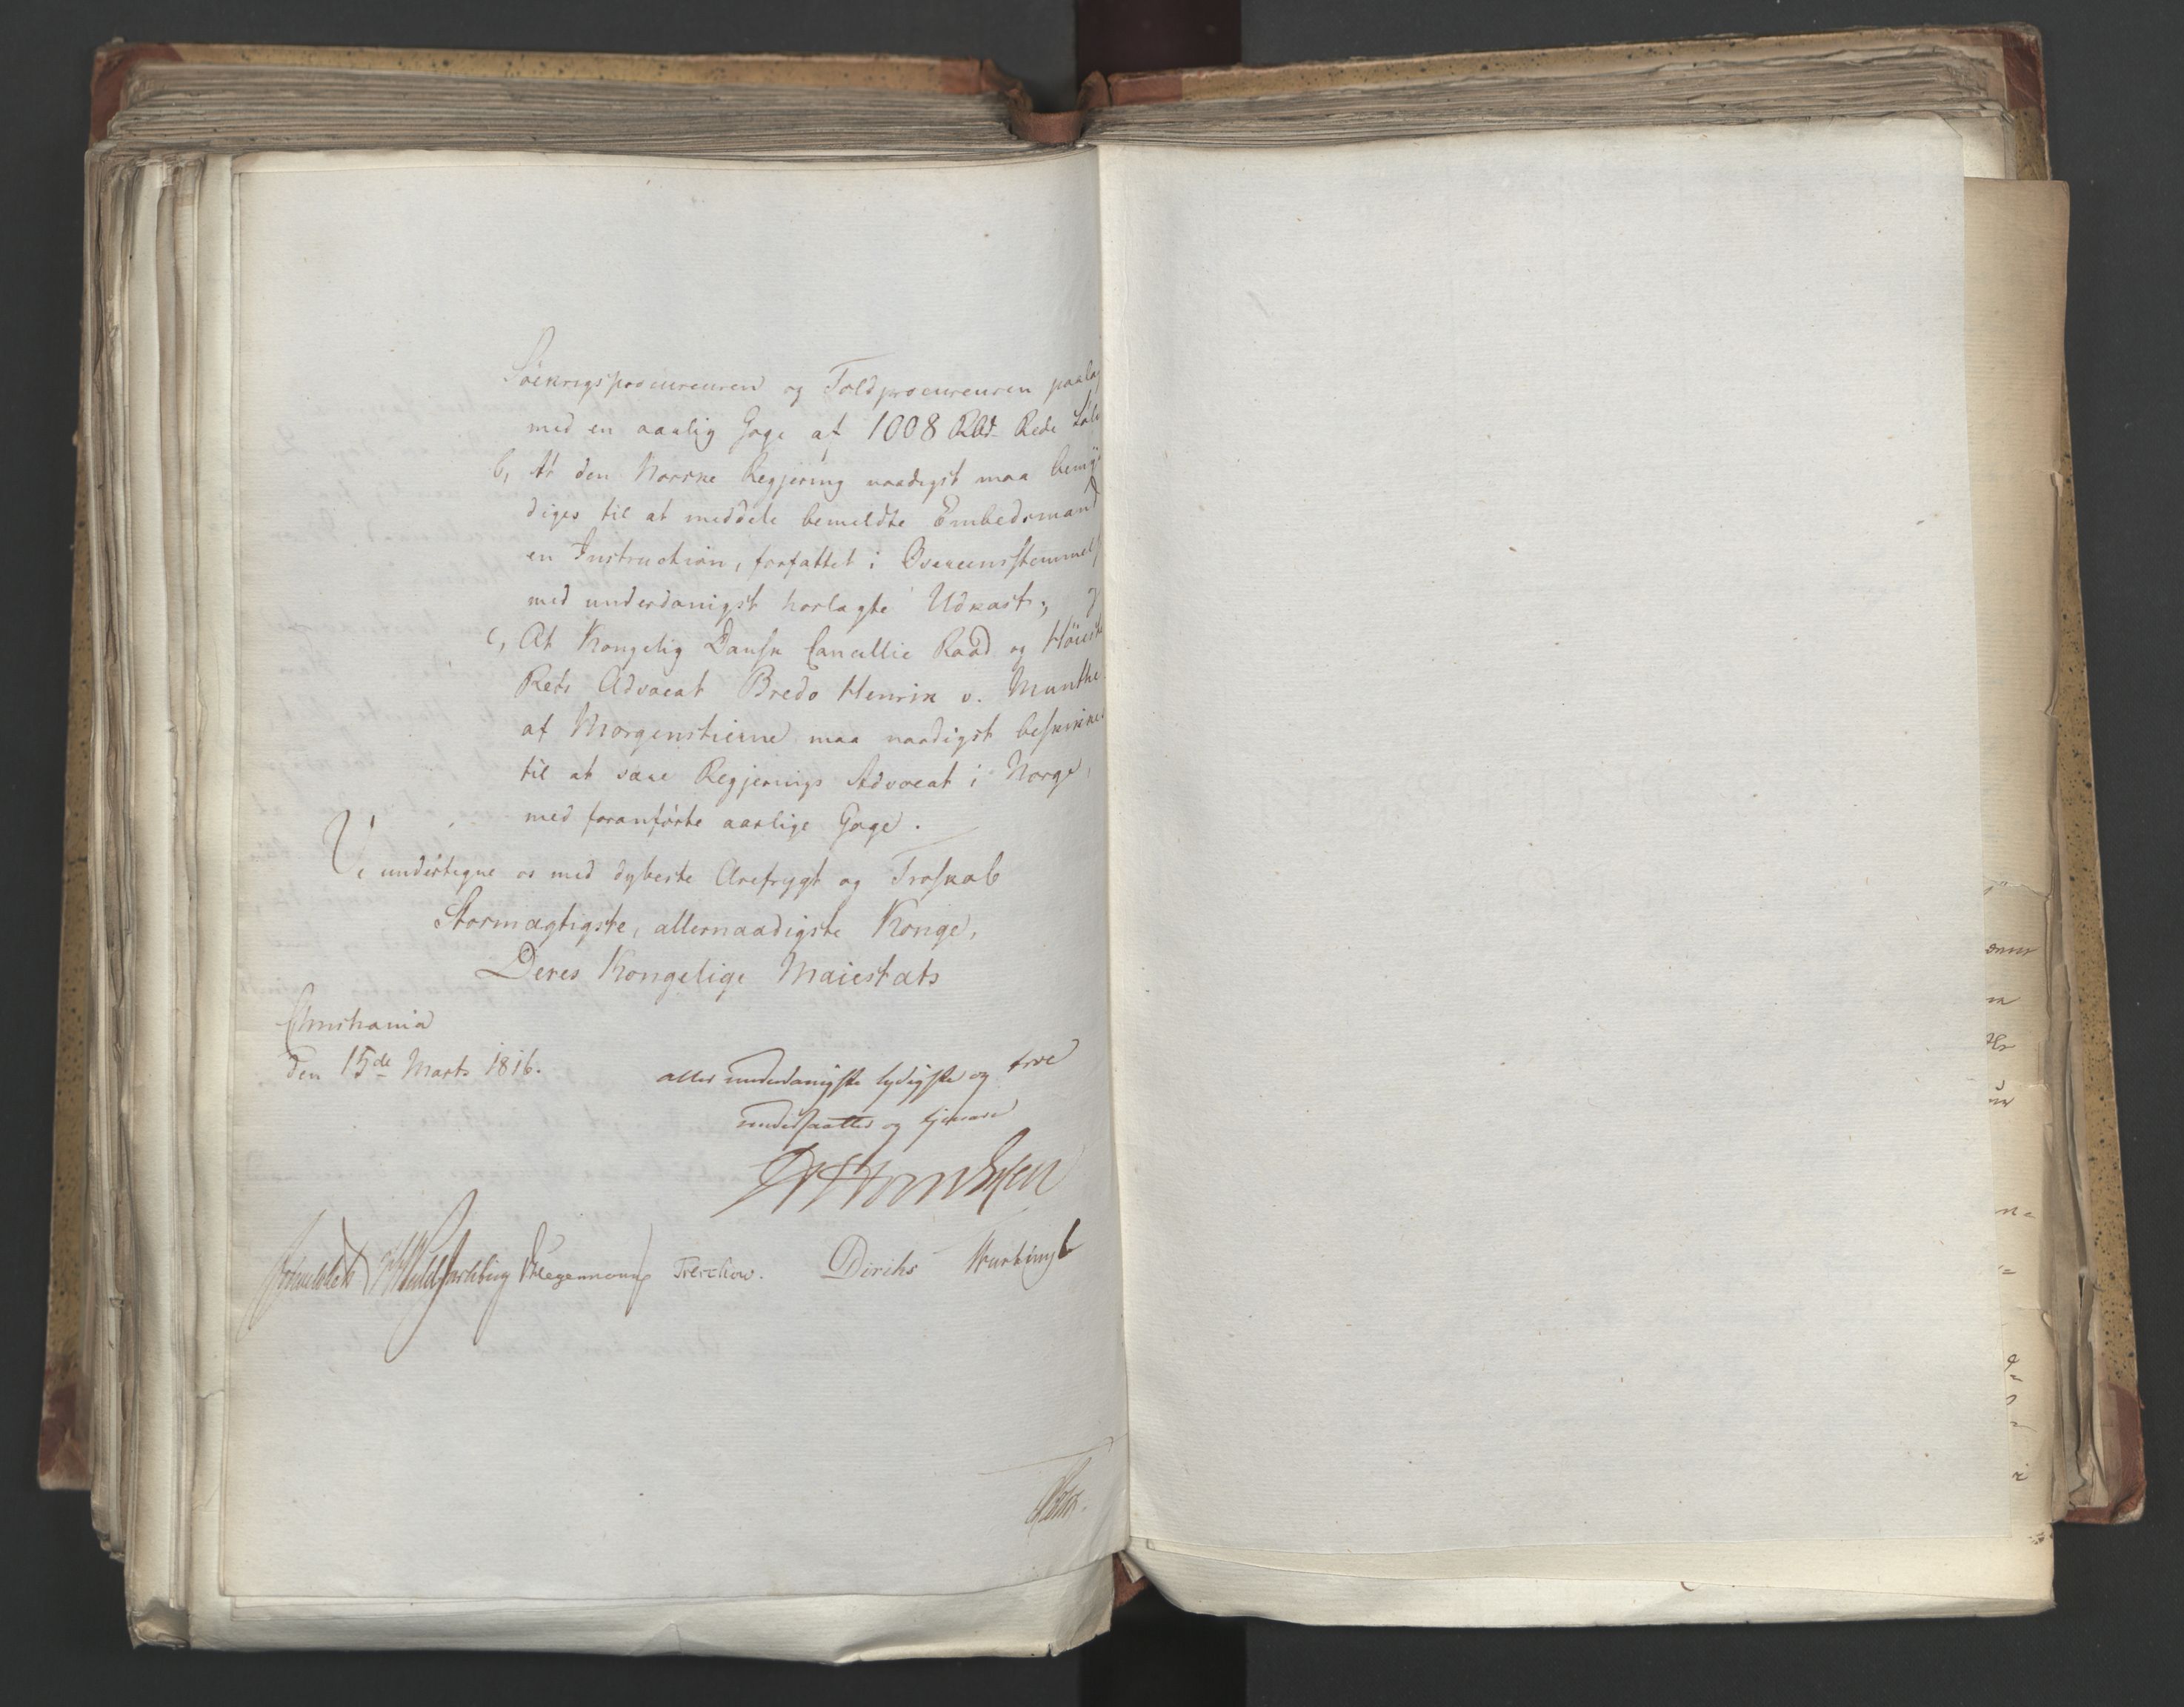 Søekrigsprocureuren og Toldprocureuren paalag
med en aarlig Gage af 1008 Rbd. Rede Sølv
b, At den Norske Regjering naadigst maa bemyn
diges til at meddele bemeldte Embedsmand
en Instruction, forfattet i Overeensstemmels
med underdanigst forlagte Udkast; og
c, At Kongelig Dansk Cancellie Raad og Høieste
Rets Advocat Bredo Henrik v. Munthe
af Morgenstierne maa naadigst beskikkes
til at være Regjerings Advocat i Norge,
med foranførte aarlige Gage.
Vi undertegne os med dybeste Ærefrygt og Troskab
Stormægtigste, allernaadigste Konge,
Deres Kongelige Maiestæts
Christiania
den 15de Marts 1816.
aller underdanigste lydigste og troe
undersaatter og tjenere
Thomsen
Sommerfeldt Hegermann Treschow. Diriks